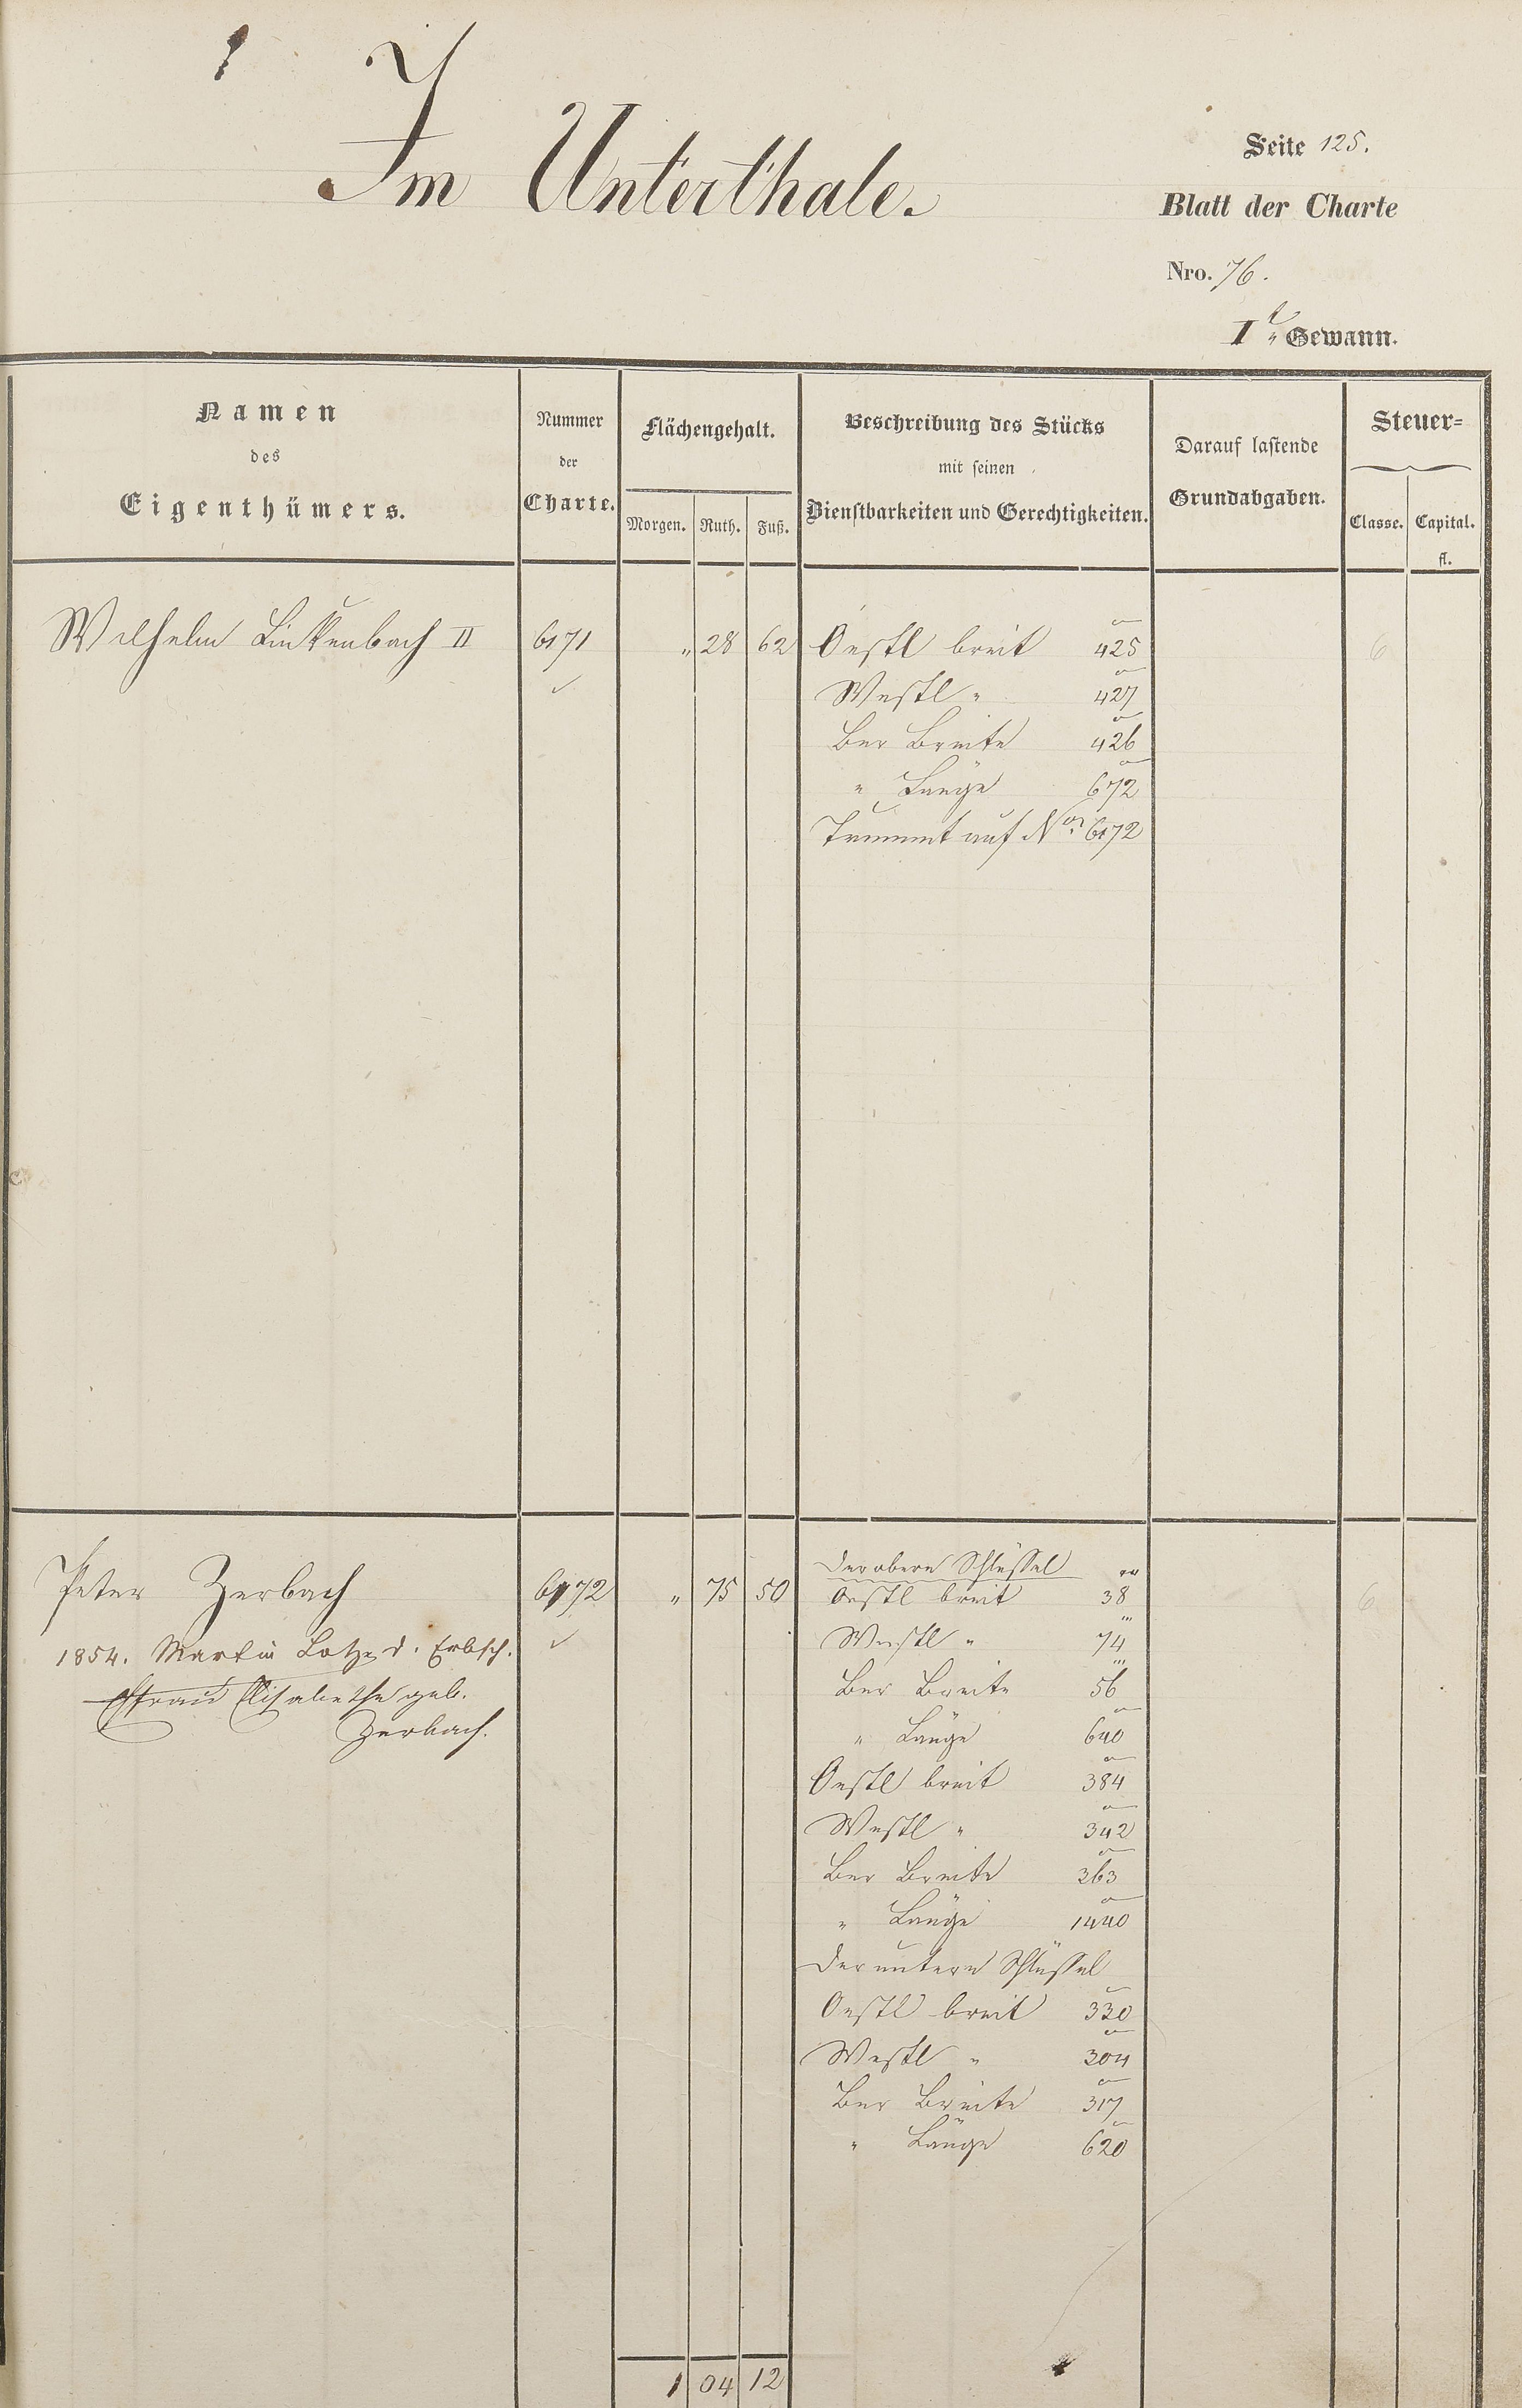 Im Unterthale.
Seite 125.
Blatt der Charte
Nro. 76.
I te Gewann.
Namen
des
Eigenthümers.
Nummer
der
Charte.
Flächengehalt.
Morgen. Ruth. Fuß.
Beschreibung des Stücks
mit seinen
Dienstbarkeiten und Gerechtigkeiten.
Darauf lastende
Grundabgaben.
Steuer=
Classe. Capital.
fl.
Wilhelm Linkenbach II 6171 " 28 62 Oestl breit 425 6
Westl " 427
Ber Breite 426
" Länge 672
auf No. 6172
Peter Zerbach 6172 " 75 50 Der obere Schlüssel
Oestl breit 38 6
1854. Martin Lotz d. Erbsch. Westl " 74
Ehfrau Elisabetha geb. Ber Breite 56
Zerbach. " Länge 640
Oestl breit 384
Westl " 342
Ber Breite 363
" Länge 1440
Der untere Schlüssel
Oestl breit 330
Westl " 304
Ber Breite 317
" Länge 620
1 04 12